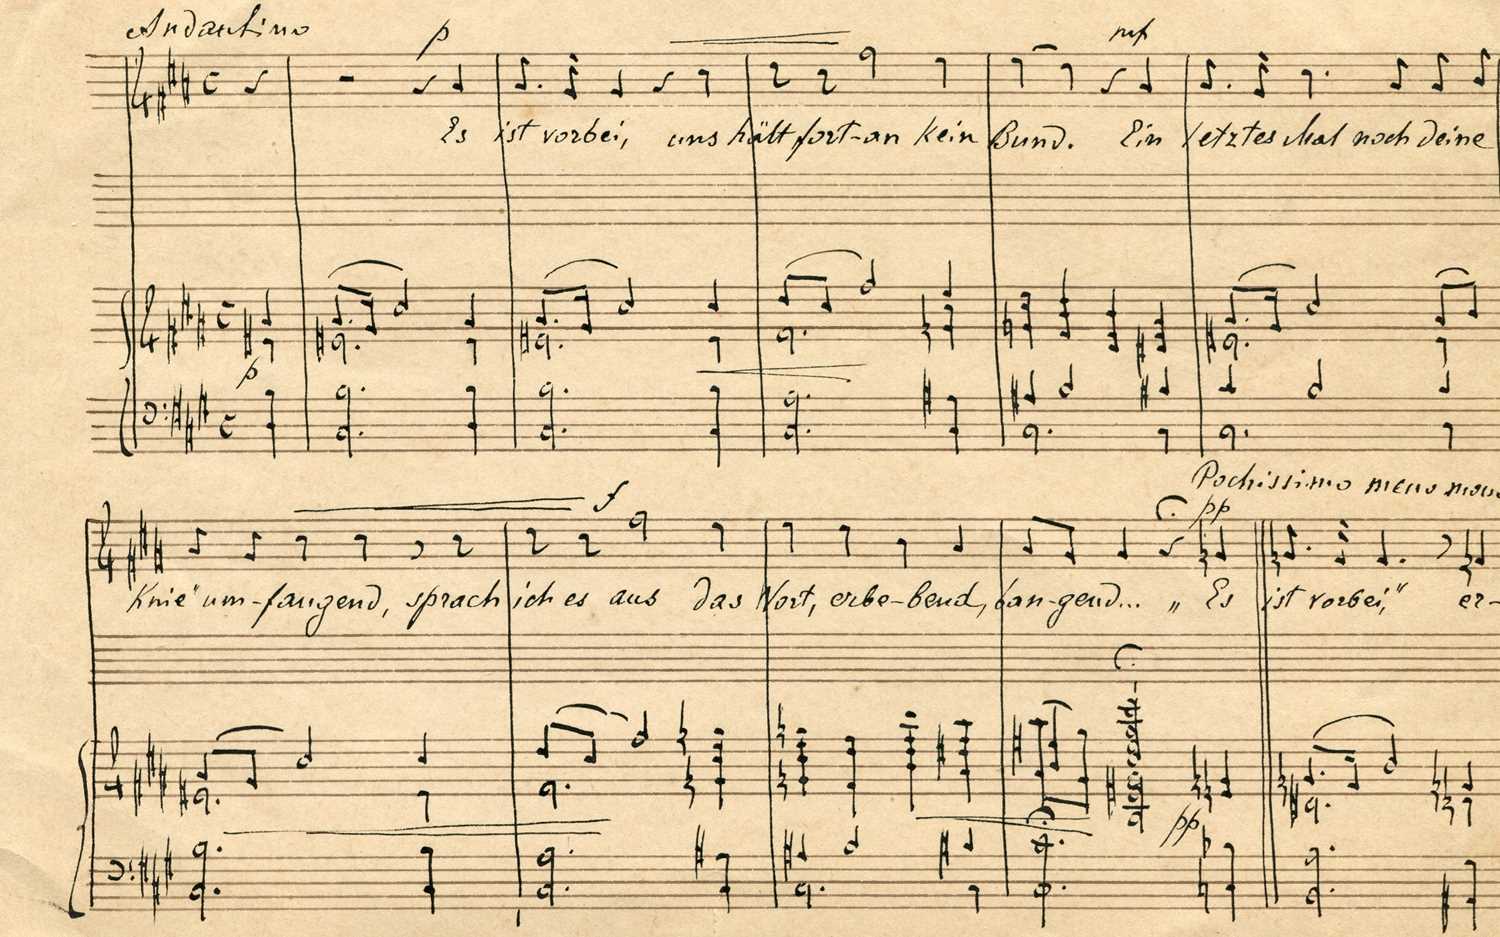 Andantino
p mf
Es ist vorbei, uns hält fort-an kein Bund. Ein letztes Mal noch deine
p
Pochissimo meno mosso
f pp
Knie" um-fangend, sprach ich es aus das Wort, erbe-bend, ban-gend... „ Es ist vorbei," er-
pp